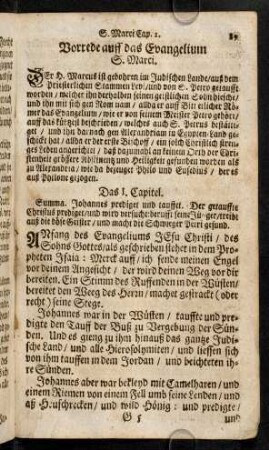 S. Marci Cap. 1.
89
Vorrede auff das Evangelium
S. Marci.
DEr H. Marcus ist gebohren im Judischen Lande/auß dem
Priesterlichen Stammen Levi/und von S. Petro getaufft
worden/welcher ihn derhalben seinen geistlichen Sohn hiesche/
und ihn mit sich gen Rom nam/allda er auff Bitt etlicher Rö-
mer das Evangelium/wie er von seinem Meister Petro gehört/
auff das kürtzist beschrieben/welches auch S. Petrus bestätti-
get/und ihn darnach gen Alexandriam in Egypten-Land ge-
schickt hat/allda er der erste Bischoff/ein solch Christlich streng-
ges Leben angerichtet/daß dazumahl an keinem Orth der Chri-
stenheit grössere Ordnung und Heiligkeit gefunden worden als
zu Alexandria/wie da bezeuget Philo und Eusebius/der es
auß Philone gezogen.
Das 1. Capitel.
Summa. Johannes prediget und tauffet. Der getauffte
Christus prediget/und wird versucht: berufft seine Jünger/treibe
auß die böse Geister/und macht die Schwieger Petri gesund.
ANfang des Evangeliums JEsu Christi/des
Sohns Gottes/als geschrieben stehet in dem Pro-
pheten Isaia: Merck auff/ich sende meinen Engel
vor deinem Angesicht/der wird deinen Weg vor dir
bereiten. Ein Stimm des Ruffenden in der Wüsten/
bereitet den Weeg des Herrn/machet gestrackt (oder
recht) seine Steege.
Johannes war in der Wüsten/tauffte und pre-
digte den Tauff der Buß zu Vergebung der Sün-
den. Und es gieng zu ihm hinauß das gantze Judi-
sche Land/und alle Hierosolymiten/und liessen sich
von ihm tauffen in dem Jordan/und beichteten ih-
re Sünden.
Johannes aber war bekleid mit Camelharen/und
einem Riemen von einem Fell umb seine Lenden/und
aß Heuschrecken/und wild Hönig: und predigte/
G 5
und